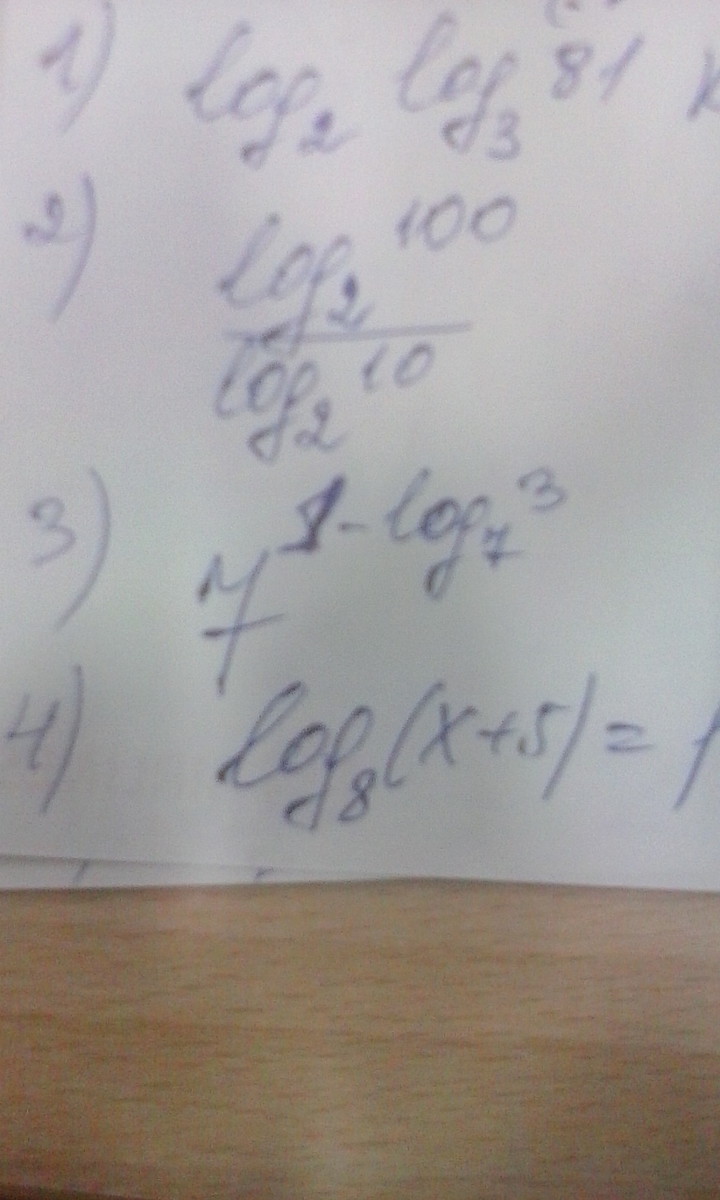 1) log₂ log₃ 81
2) log₂ 100
log₂ 10
3) 7^(1-log₇ 3)
4) log₈(x+5)= 1